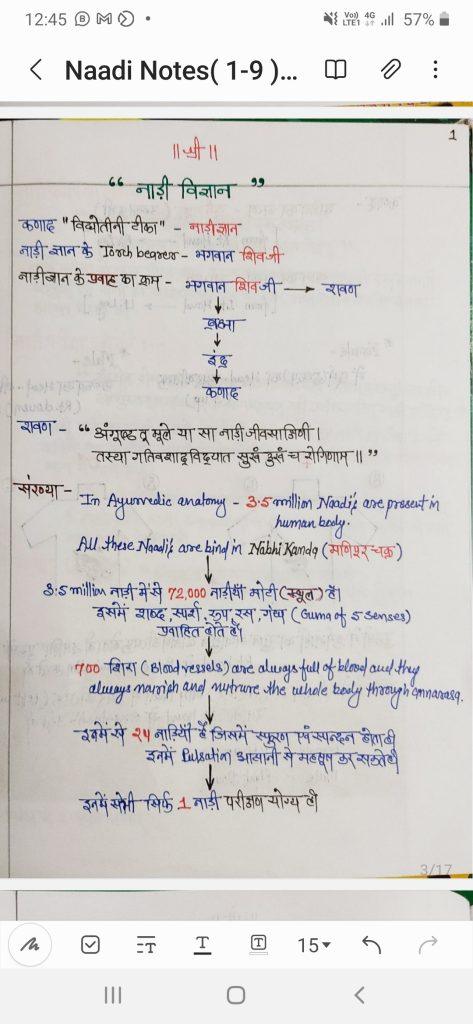 12:45
Vo)) 4G
LTE1
57%
Naadi Notes( 1-9 )...
1
॥श्री॥
“ नाड़ी विज्ञान ”
कणाद "विद्योतीनी टीका" - नाड़ीज्ञान
नाड़ी ज्ञान के Torch bearer - भगवान शिवजी
नाड़ीज्ञान के प्रवाह का क्रम - भगवान शिवजी → रावण
↓
ब्रह्मा
↓
इंद्र
↓
कणाद
रावण - “ अंगूष्ठ तू मूले या सा नाड़ी जीवसाक्षिणी।
तस्या गतिवशाद्विद्यात सुखं दुखं च रोगिणाम॥ ”
संख्या - In Ayurvedic anatomy - 3.5 million Naadi's are present in
human body.
All these Naadi's are bind in Nabhi Kanda (मणिपूर चक्र)
↓
3.5 million नाड़ी में से 72,000 नाड़ीयाँ मोटी (स्थूल) हैं।
इसमें शब्द, स्पर्श, रूप, रस, गंध (Guna of 5 senses)
प्रवाहित होते हैं।
↓
700 शिरा (Blood vessels) are always full of blood and they
always nourish and nurture the whole body through annarasa.
↓
इनमें से 24 नाड़ियाँ हैं जिसमें स्फुरण एवं स्पन्दन होता है
इनमें Pulsation आसानी से महसूस कर सकते है
↓
इनमें से भी सिर्फ 1 नाड़ी परीक्षण योग्य है
3/17
15